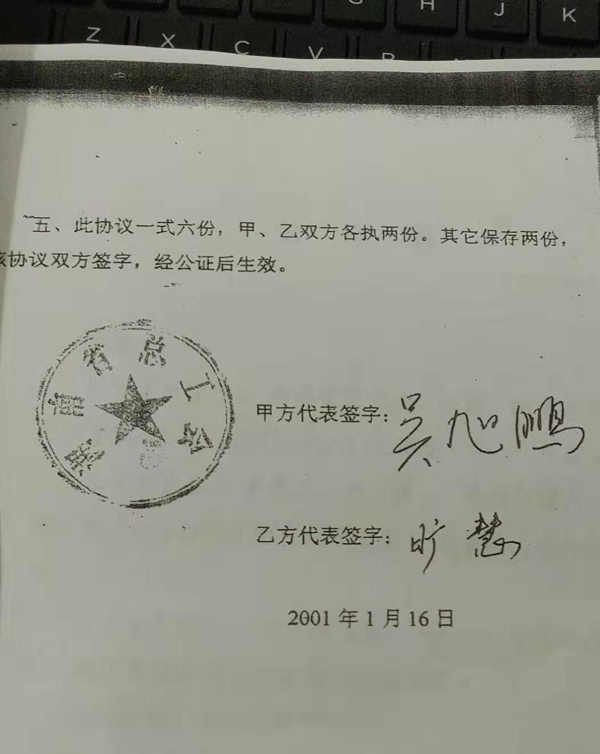 G
H
J
K
Z
X
C
V
B
五、此协议一式六份，甲、乙双方各执两份。其它保存两份，
该协议双方签字，经公证后生效。
湖南省总工会
甲方代表签字：吴旭鹏
乙方代表签字：旷慧
2001年1月16日